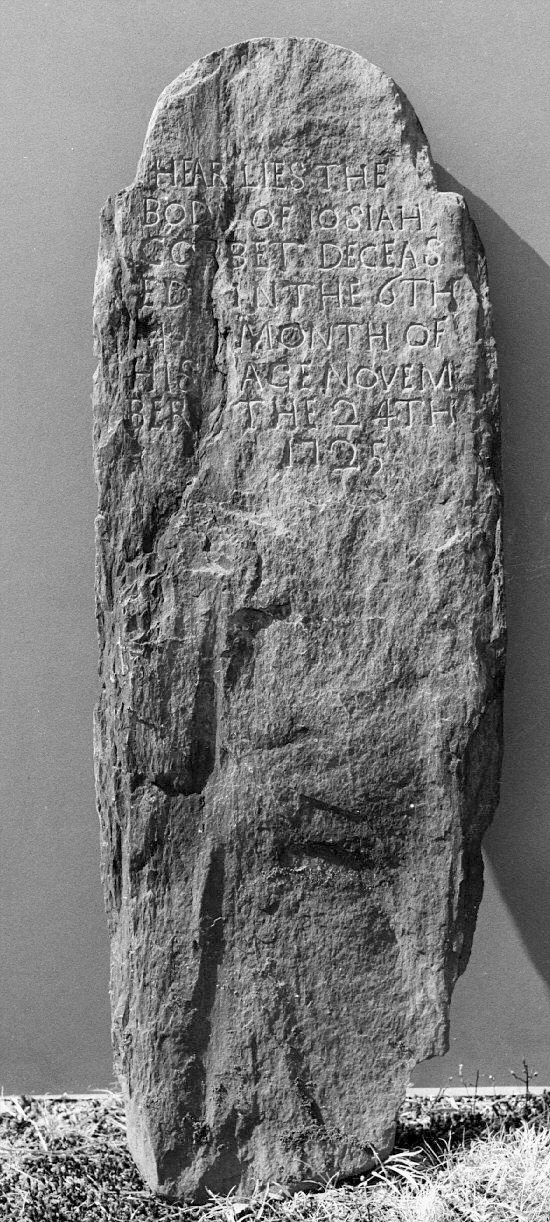 HEAR LIES THE
BODY OF IOSIAH
COBET DECEAS
ED IN THE 6TH
MONTH OF
HIS AGE NOVEM
BER THE 24TH
1725